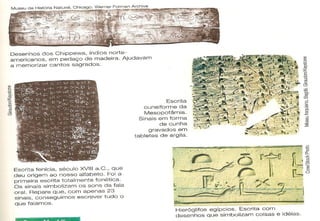 Museu de História Natural, Chicago, Werner Forman Archive
Desenhos dos Chippewa, índios norte-
americanos, em pedaço de madeira. Ajudavam
a memorizar cantos sagrados.
Escrita
cuneiforme da
Mesopotâmia.
Sinais em forma
de cunha
gravados em
tabletes de argila.
Escrita fenícia, século XVIII a.C., que
deu origem ao nosso alfabeto. Foi a
primeira escrita totalmente fonética.
Os sinais simbolizam os sons da fala
oral. Repare que, com apenas 23
sinais, conseguimos escrever tudo o
que falamos.
Hieróglifos egípcios. Escrita com
desenhos que simbolizam coisas e idéias.